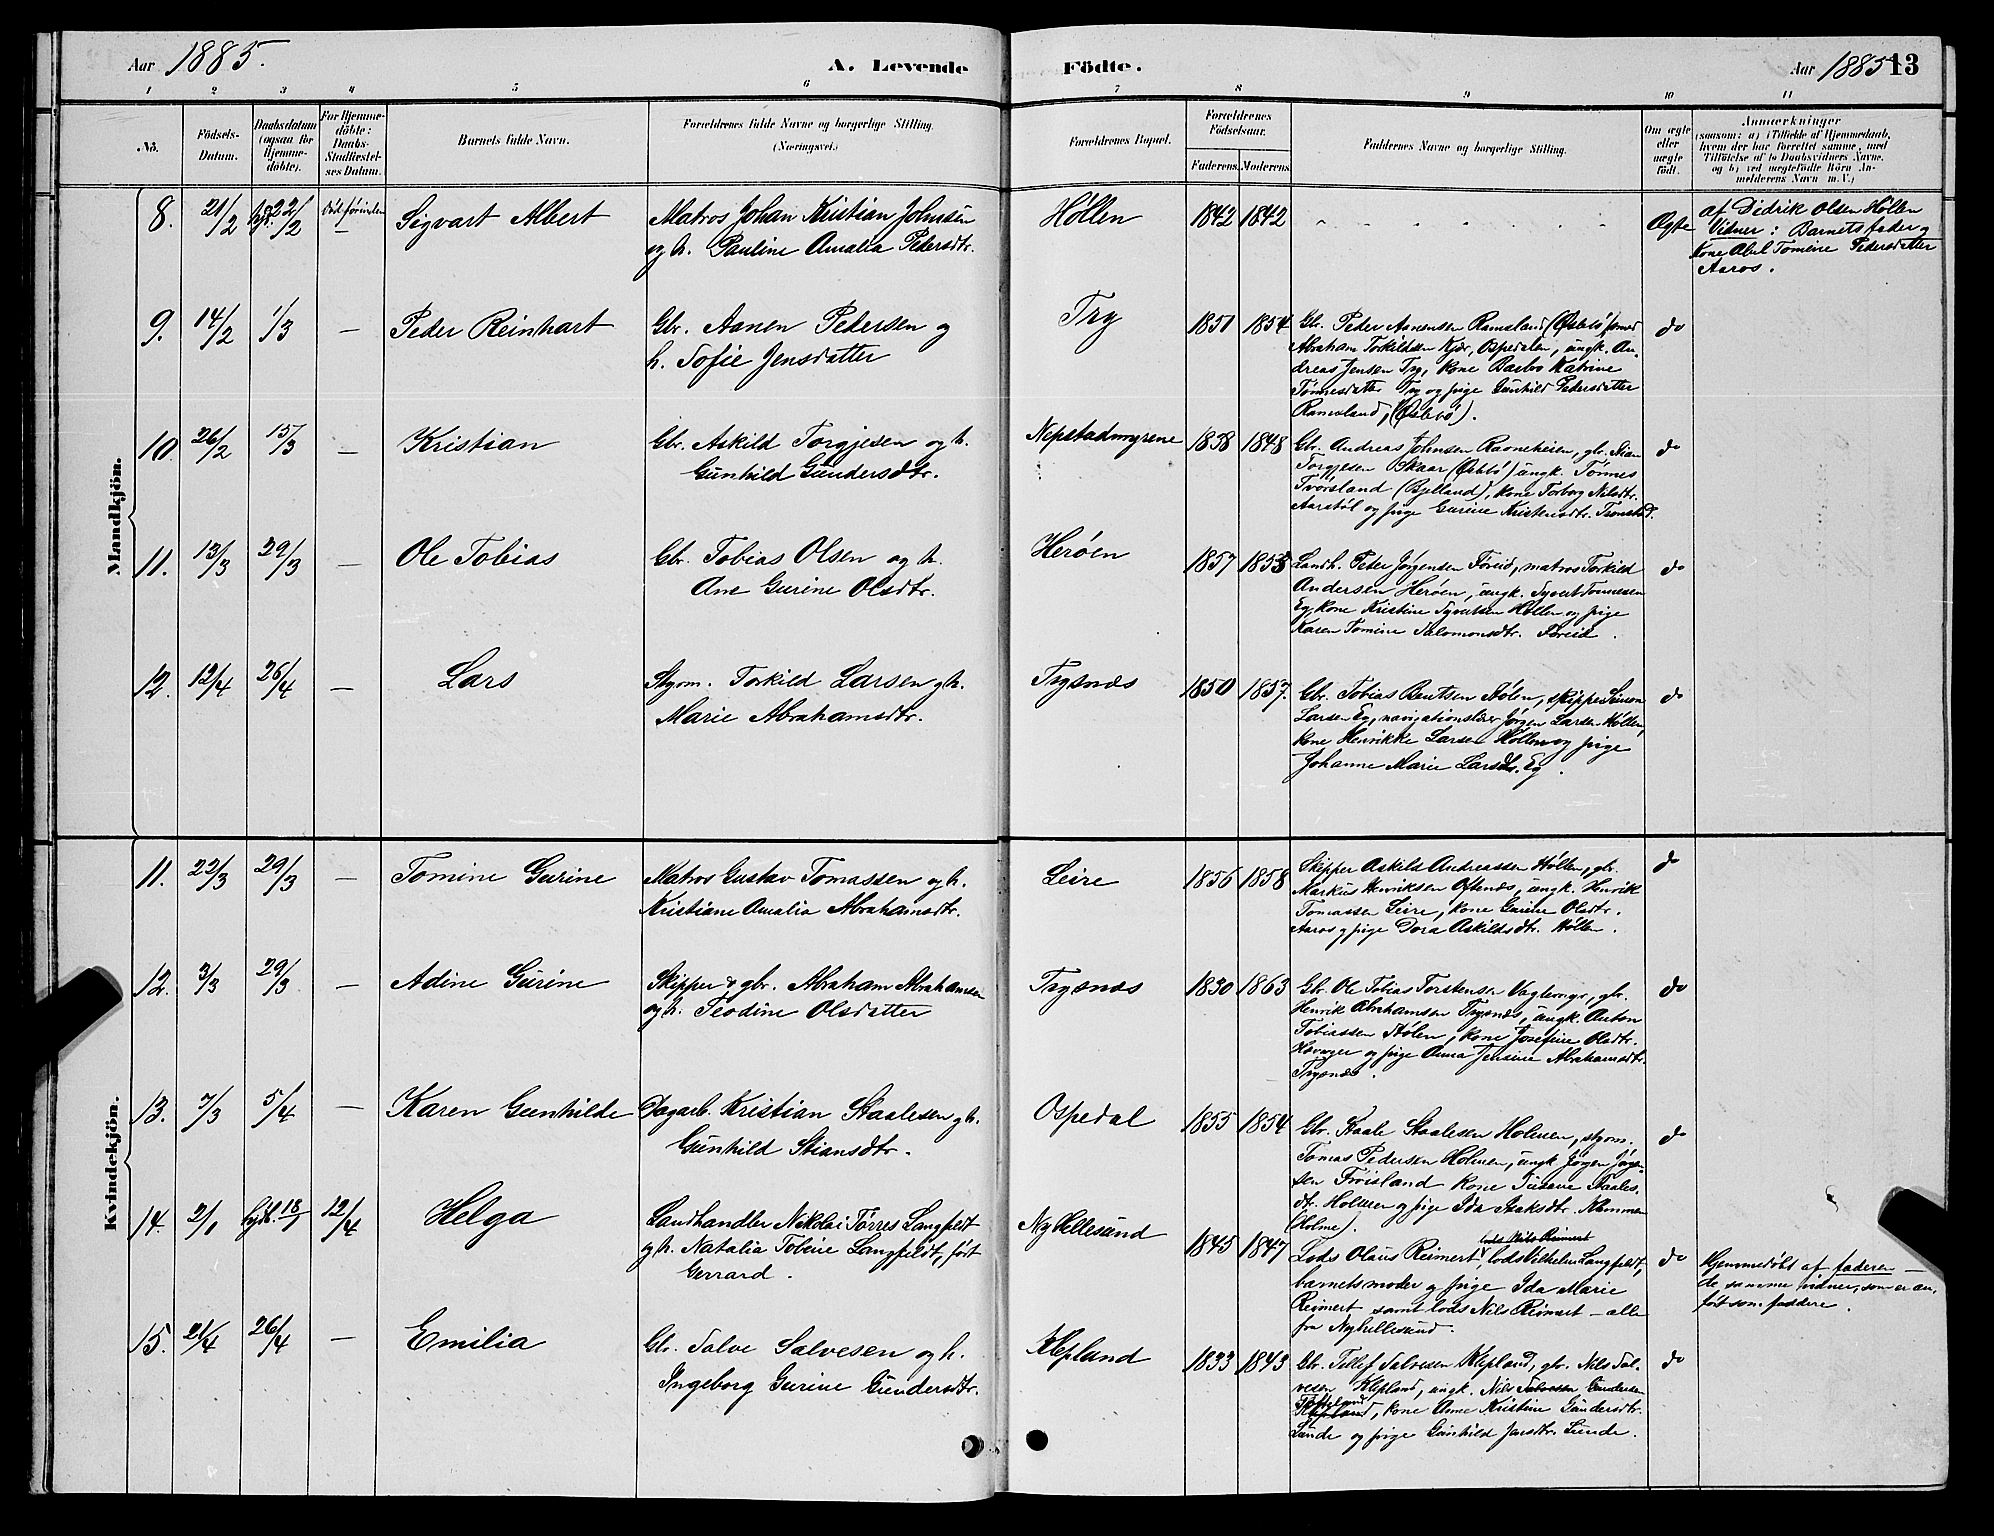 Aar 1885. A. Levende Födte. Aar 1885 13
1 2 3 4 5 6 7 8 9 10 11
No. Födsels-Datum. Daabsdatum (ogsaa for Hjemme-döbte). For Hjemme-döbte: Daabs-Stadfæstel-ses Datum. Barnets fulde Navn. Forældrenes fulde Navne og borgerlige Stilling. (Næringsvei.) Forældrenes Bopæl. Forældrenes Födselsaar. Faderens. Moderens. Faddernes Navne og borgerlige Stilling. Om ægte eller uægte födt. Anmærkninger (saasom: a) i Tilfælde af Hjemmedaab, hvem der har forrettet samme, med Tilföielse af to Daabsvidners Navne, og b) ved uægtefödte Börn An-melderens Navn m. V.)
Mandkjön.
8. 21/2 hjd. 22/2 Död forinden Sigvart Albert Matros Johan Kristian Johnsen Høllen 1842 1842 Ægte af Didrik Olsen Høllen
og h. Pauline Amalia Pedersdtr. Vidner: Barnets fader og
Kone Abel Tomine Pedersdatter
Aaros.
9. 14/2 1/3 — Peder Reinhart Gbr. Aanen Pedersen og Try 1851 1854 Gbr. Peder Aanensen Ramsland (Øslebö) do
h. Sofie Jensdatter Abraham Torkildsen Kjær, Ospedalen, ungk. An-
dreas Jensen Try, kone Barbro Katrine
Tønnesdatter Try og pige Gunhild Pedersdatter
Ramsland, (Øslebö).
10. 26/2 15/3 — Kristian Gbr. Askild Torgjesen og h. Nepstadmyrene 1838 1848 Gbr. Andreas Johnsen Ravneheien, gbr. Stian do
Gunhild Gundersdtr. Torgjesen Skaar (Øslebö) ungk. Tønnes
(Bjelland), kone Torborg Nilsdtr.
Aarstøl og pige Gurine Kristensdtr. Tronstad.
11. 13/3 29/3 — Ole Tobias Gbr. Tobias Olsen og h. Herøen 1857 1853 Landh. Peder Jørgensen Foreid, matros Torkild do
Ane Gurine Olsdtr. Andersen Herøen, ungk. Syvert Tønnesen
Eg, kone Kristine Syvertsen Høllen og pige
Karen Tomine Salomonsdtr. Foreid.
12. 12/4 26/4 — Lars Stgom. Torkild Larsen og h. Trysnes 1850 1857. Gbr. Tobias Bentsen Stølen, skipper Simon do
Marie Abrahamsdtr. Larsen Eg, navigationslærer Jørgen Larsen Høllen,
kone Henrikke Larsen Høllen og pige
Johanne Marie Larsdtr. Eg.
Kvindekjön.
11. 22/3 29/3 — Tomine Gurine Matros Gustav Tomassen og h. Leire 1856 1858 Skipper Askild Andreassen Høllen, gbr. do
Kristiane Amalia Abrahamsdtr. Markus Henriksen Oftenes, ungk. Henrik
Tomassen Leire, kone Gurine Olsdtr.
Aaros og pige Dora Askildsdtr. Høllen.
12. 3/3 29/3 — Adine Gurine Skipper & gbr. Abraham Abrahamsen Trysnes 1830 1863 Gbr. Ole Tobias Torstensen Vagtenge, gbr. do
og h. Teodine Olsdatter Henrik Abrahamsen Trysnes, ungk. Anton
Tobiassen Stølen, kone Josefine Olsdtr.
og pige Anna Jensine Abrahamsdtr.
Trysnes.
13. 7/3 5/4 — Karen Gunhilde Dagarb. Kristian Staalesen og h. Ospedal 1855 1854 Gbr. Staale Staalesen Holmen, stgom. do
Gunhild Stiansdtr. Tomas Pedersen Holmen, ungk. Jørgen Jørgen-
sen Frøisland kone Staales-
dtr. Holmen og pige Ida
(Holme).
14. 2/1 hjdb. 18/1 12/4 Helga Landhandler Nikolai Tørres Langfeldt Ny Hellesund 1845 1847 Lods Olaus Reimert, lods Vilhelm Langfeldt, do Hjemmedøbt af faderen —
og h. Natalia Tobine Langfeldt, født barnets moder og pige Ida Marie de samme vidner, som er an-
Gerrard. Reimert samt lods Nils Reimert — alle ført som faddere.
fra Nyhellesund.
15. 21/4 26/4 — Emilia Gbr. Salve Salvesen og h. Klepland 1833 1843 Gbr. Tellef Salvesen Klepland, gbr. Nils Sal- do
Ingeborg Gurine Gundersdtr. vesen Klepland, ungk. Nils Salvesen Gundersen
Klepland, kone Anne Kristine Gundersdtr.
Lunde og pige Gunhild Jensdtr. Lunde.